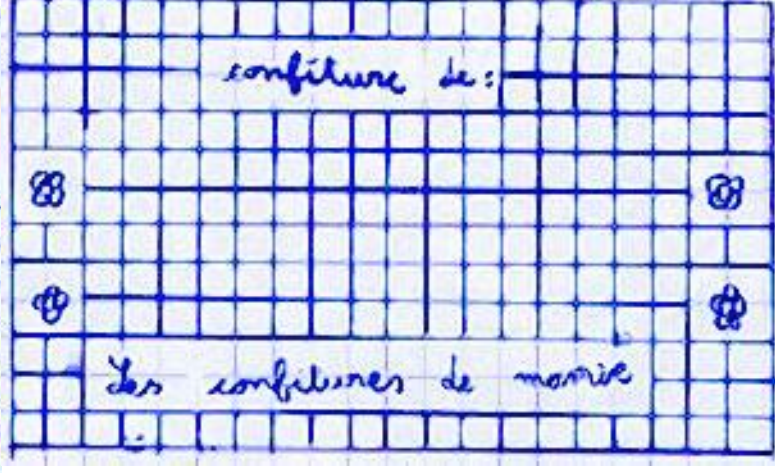 confiture de :
Les confitures de mamie